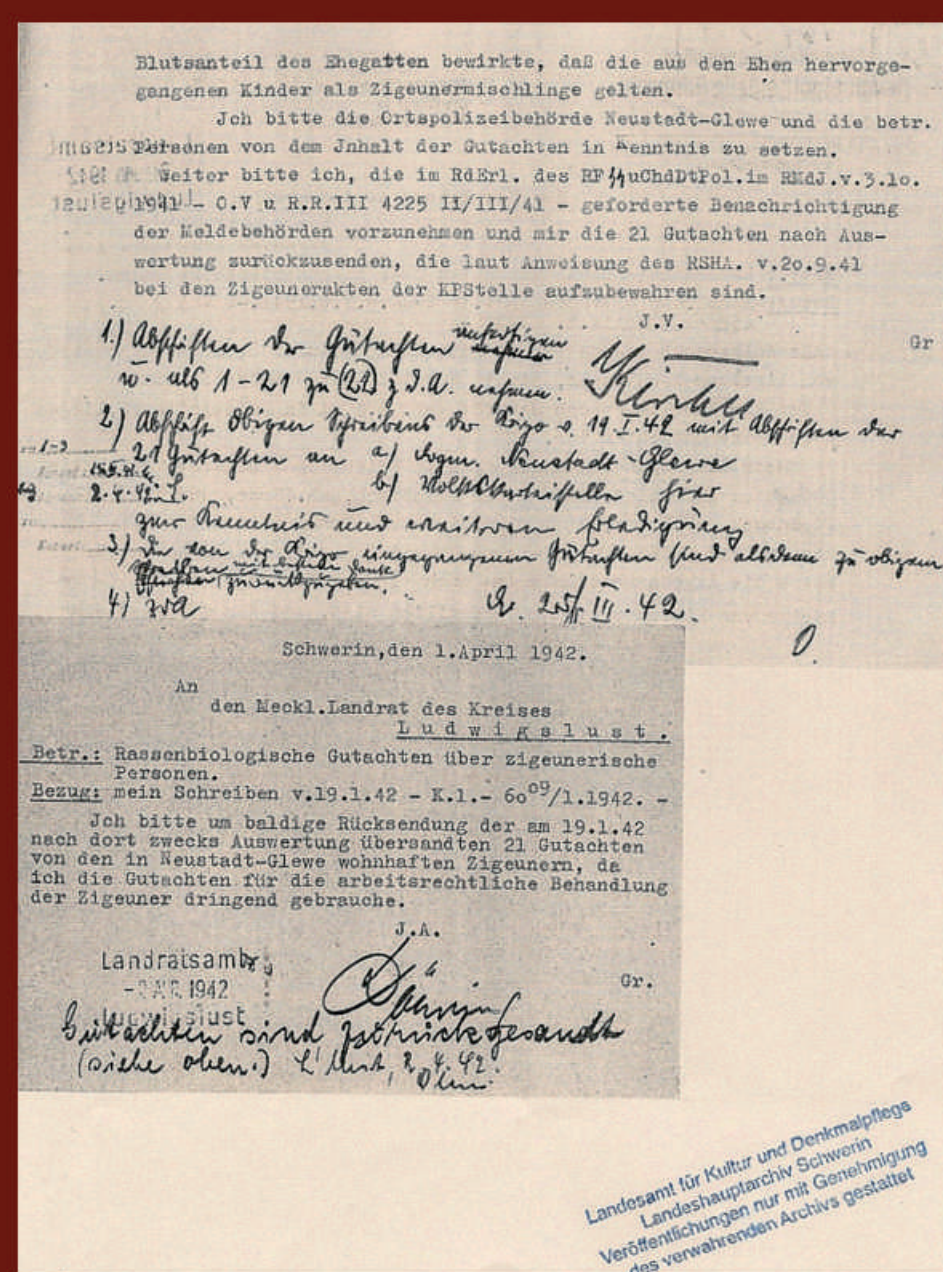 Blutsanteil des Ehegatten bewirkte, daß die aus den Ehen hervorge-
gangenen Kinder als Zigeunermischlinge gelten.
Ich bitte die Ortspolizeibehörde Neustadt-Glewe und die betr.
Personen von dem Jnhalt der Gutachten in Kenntnis zu setzen.
Weiter bitte ich, die im RdErl. des RFᛋᛋuChdDtPol.im RMdJ.v.3.10.
1941 - O.V u R.R.III 4225 II/III/41 - geforderte Benachrichtigung
der Meldebehörden vorzunehmen und mir die 21 Gutachten nach Aus-
wertung zurückzusenden, die laut Anweisung des RSHA. v.20.9.41
bei den Zigeunerakten der KPStelle aufzubewahren sind.
J.V.
Gr
1.) Abschriften der Gutachten anfertigen
u. als 1-21 zu (22) z.d.A. nehmen.
2) Abschrift obigen Schreibens der Kripo v. 19.I.42 mit Abschriften der
21 Gutachten an a) Bgm. Neustadt-Glewe
b) Volkskarteistelle hier
zur Kenntnis und weiteren Erledigung
3.) Die von der Kripo eingegangenen Gutachten sind alsdann zu obigem
zurückzugeben.
4) zdA
III.42.
Schwerin,den 1.April 1942.
An
den Meckl.Landrat des Kreises
Ludwigslust.
Betr.: Rassenbiologische Gutachten über zigeunerische
Personen.
Bezug: mein Schreiben v.19.1.42 - K.1.- 60⁰⁹/1.1942. -
Ich bitte um baldige Rücksendung der am 19.1.42
nach dort zwecks Auswertung übersandten 21 Gutachten
von den in Neustadt-Glewe wohnhaften Zigeunern, da
ich die Gutachten für die arbeitsrechtliche Behandlung
der Zigeuner dringend gebrauche.
J.A.
Gr.
Landratsamt
1942
Ludwigslust
Gutachten sind zurückgesandt
(siehe oben.) L'lust, 2.4.42.
Landesamt für Kultur und Denkmalpflege
Landeshauptarchiv Schwerin
Veröffentlichungen nur mit Genehmigung
des verwahrenden Archivs gestattet